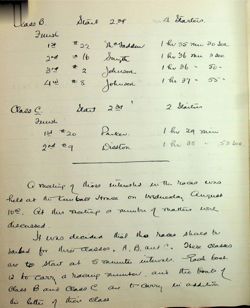 Class B Start 2.20 4 Starters.
Finish
1st # 22 McFadden 1 hr 35 min 20 sec
2nd # 16 Smyth 1 hr 36 min
3rd # 2 Johnson 1 hr 36 - 50 -
4th # 8 Johnson 1 hr 37 - 55 -
Class C Start 2.25 2 Starters
Finish
1st # 20 Parker 1 hr 29 min
2nd # 9 1 hr 35 - 53 sec
A meeting of those interested in the races was
held at the on Wednesday August
10th. At this meeting a number of matters were
discussed.
It was decided that the races should be
for three classes, A, B, and C. These classes
are to start at 5 minute intervals. Each boat
is to carry a racing number, and the boats of
Class B and Class C are to carry in addition
the letter of their class